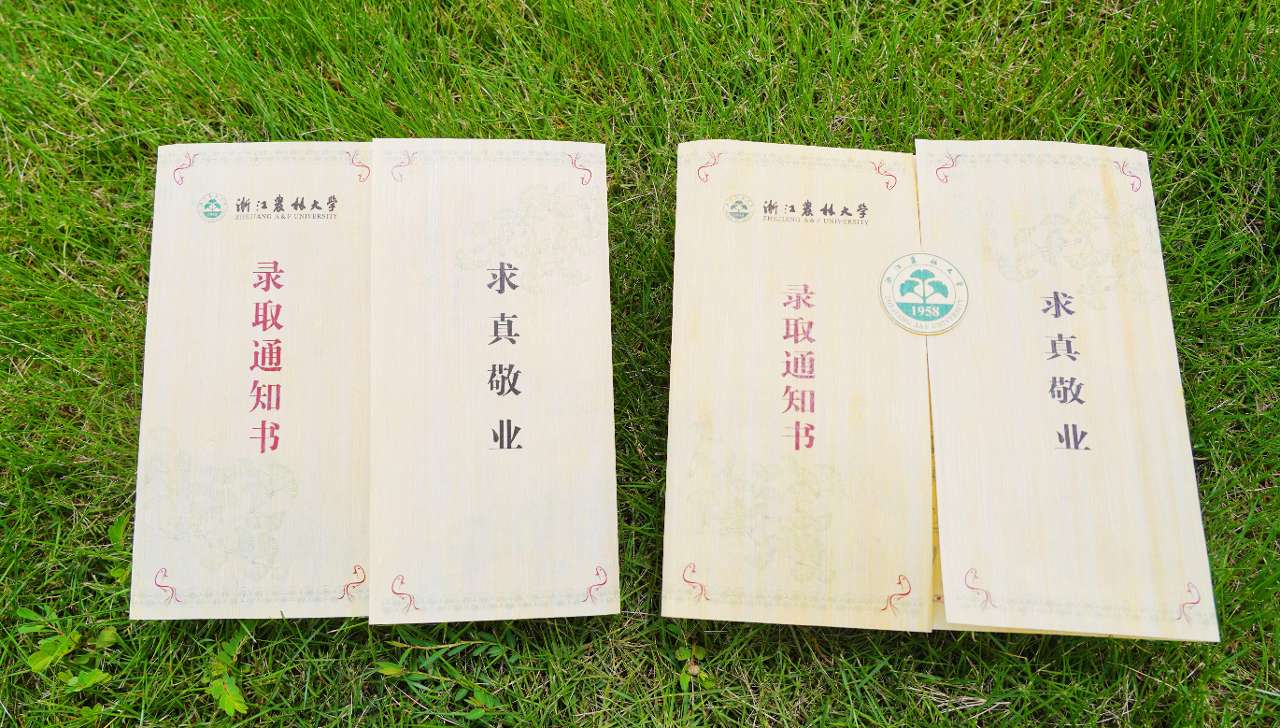 浙江农林大学
ZHEJIANG A&F UNIVERSITY
录取通知书
求真敬业
浙江农林大学
ZHEJIANG A&F UNIVERSITY
录取通知书
浙江农林大学
1958
ZHEJIANG A&F UNIVERSITY
求真敬业